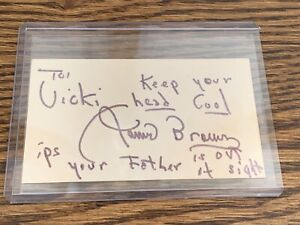 To: Keep your
Vicki head Cool
James Brown
ips your Father is out
it sight